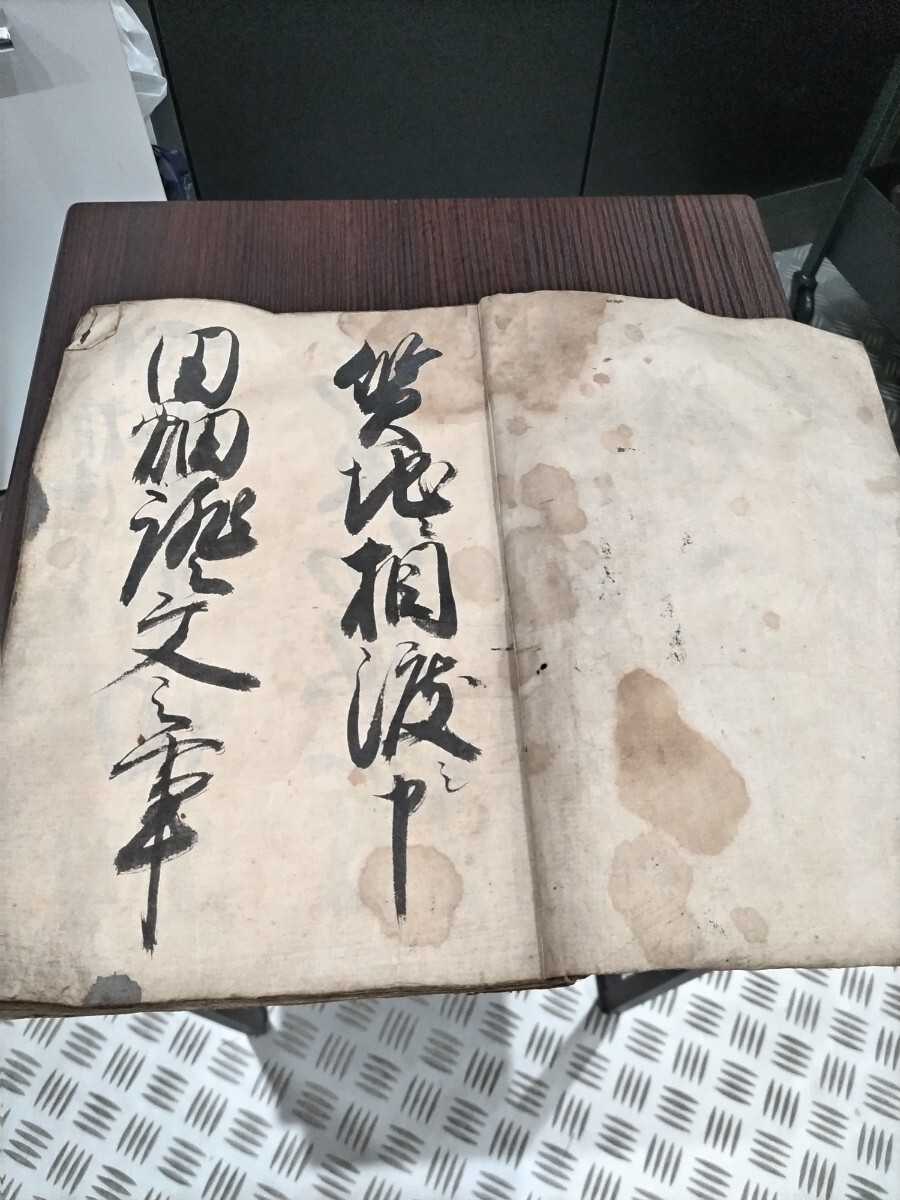 質地ニ相渡シ申
田畑證文之事